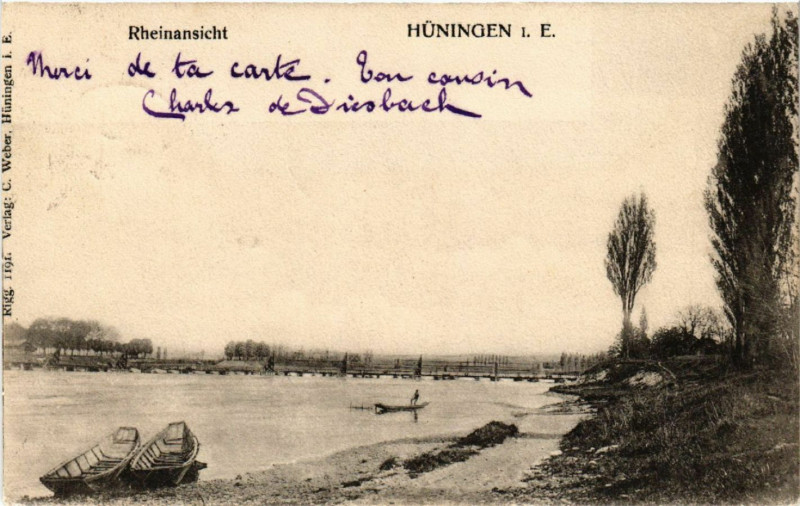 Rheinansicht
HÜNINGEN I. E.
Merci de ta carte. Ton cousin
Charles de Diesbach
Rigg 1191. Verlag: C. Weber, Hüningen i. E.